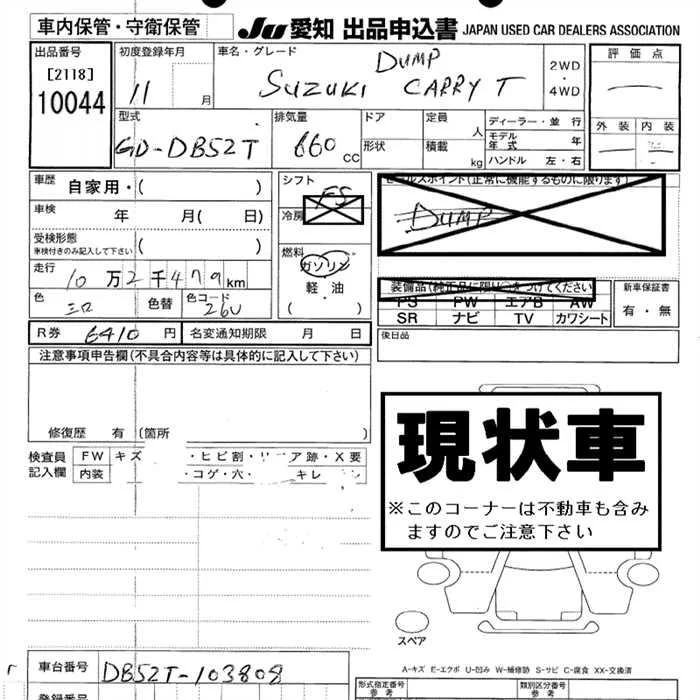 車内保管・守衛保管
JU 愛知 出品申込書 JAPAN USED CAR DEALERS ASSOCIATION
出品番号
[2118]
10044
初度登録年月
11 月
車名・グレード
DUMP
SUZUKI CARRY T
2WD
・
4WD
評価点
外装 内装
型式
GD-DB52T
排気量
660 cc
ドア
形状
定員 人
積載 kg
ディーラー・並行
モデル年式 年
ハンドル 左・右
車歴 自家用・( )
車検 年 月( 日)
受検形態
※車検付きのみ記入して下さい ( )
走行 10万2千479km
色 シロ 色替 色コード 26U
シフト F5
冷房
燃料
ガソリン
軽・油
( )
セールスポイント(正常に機能するものに限ります)
DUMP
装備品(純正品に限り○をつけてください)
PS PW エアB AW
SR ナビ TV カワシート
新車保証書
有・無
R券 6410円 名変通知期限 月 日
後日品
注意事項申告欄(不具合内容等は具体的に記入して下さい)
修復歴 有 (箇所 )
検査員
記入欄
FW キズ ・ヒビ割・リペア跡・X要
内装 ・コゲ・穴・ キレ
現状車
※このコーナーは不動車も含み
ますのでご注意下さい
スペア
A-キズ E-エクボ U-凹み W-補修跡 S-サビ C-腐食 XX-交換済
車台番号 DB52T-103808
登録番号
形式指定番号
参考
類別区分番号
参考